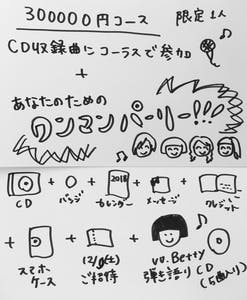 300000円コース 限定1人
CD収録曲にコーラスで参加
+
あなたのための
ワンマンパーリー!!
CD + バッジ + 2018 カレンダー + メッセージ + クレジット
+ スマホケース + 12/9(土)ご招待 + vo.Betty 弾き語りCD(5曲入り)